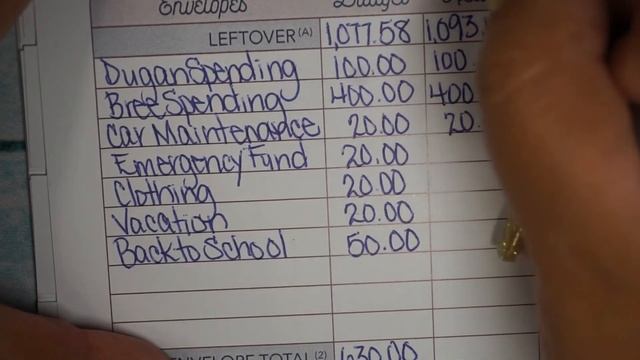 Envelopes Budget
LEFTOVER (A) 1,077.58 1,093.
Dugan Spending 100.00 100
Bree Spending 400.00 400
Car Maintenance 20.00 20.
Emergency Fund 20.00
Clothing 20.00
Vacation 20.00
Back to School 50.00
ENVELOPE TOTAL (2) 630.00